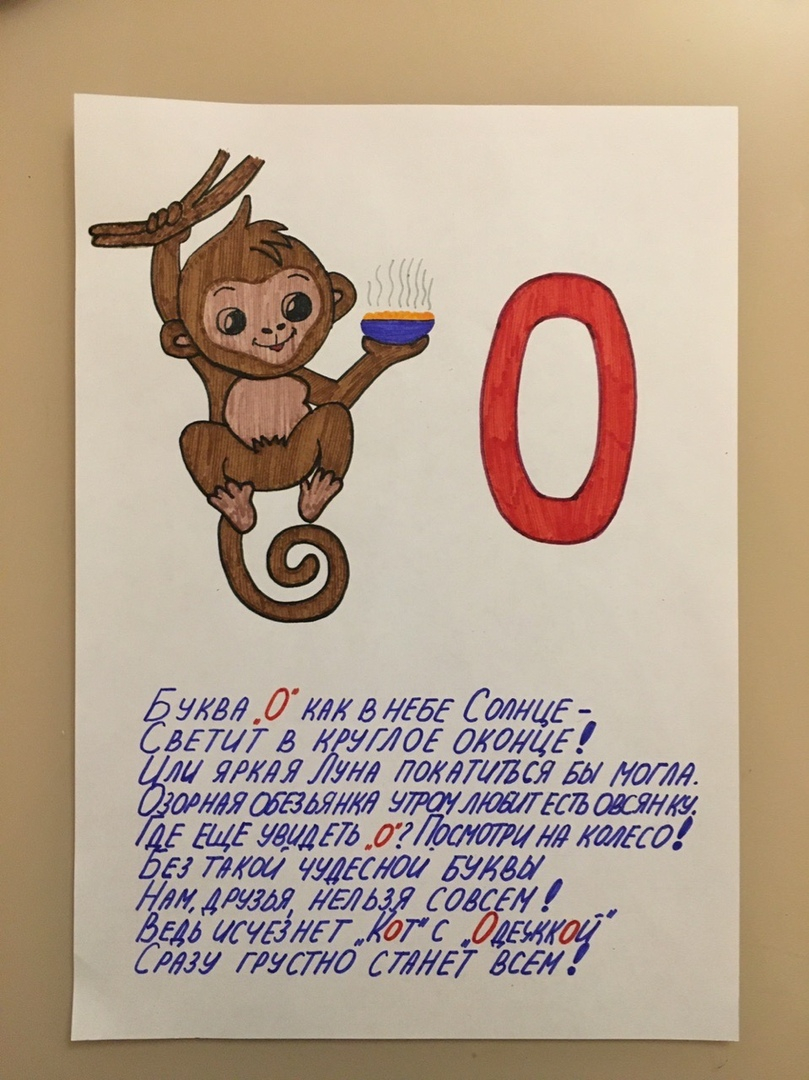 О
Буква „О" как в небе Солнце -
Светит в круглое оконце!
Или яркая Луна покатиться бы могла.
Озорная обезьянка утром любит есть овсянку.
Где ещё увидеть „О"? Посмотри на колесо!
Без такой чудесной буквы
Нам, друзья, нельзя совсем!
Ведь исчезнет „Кот" с „Одежкой"
Сразу грустно станет всем!